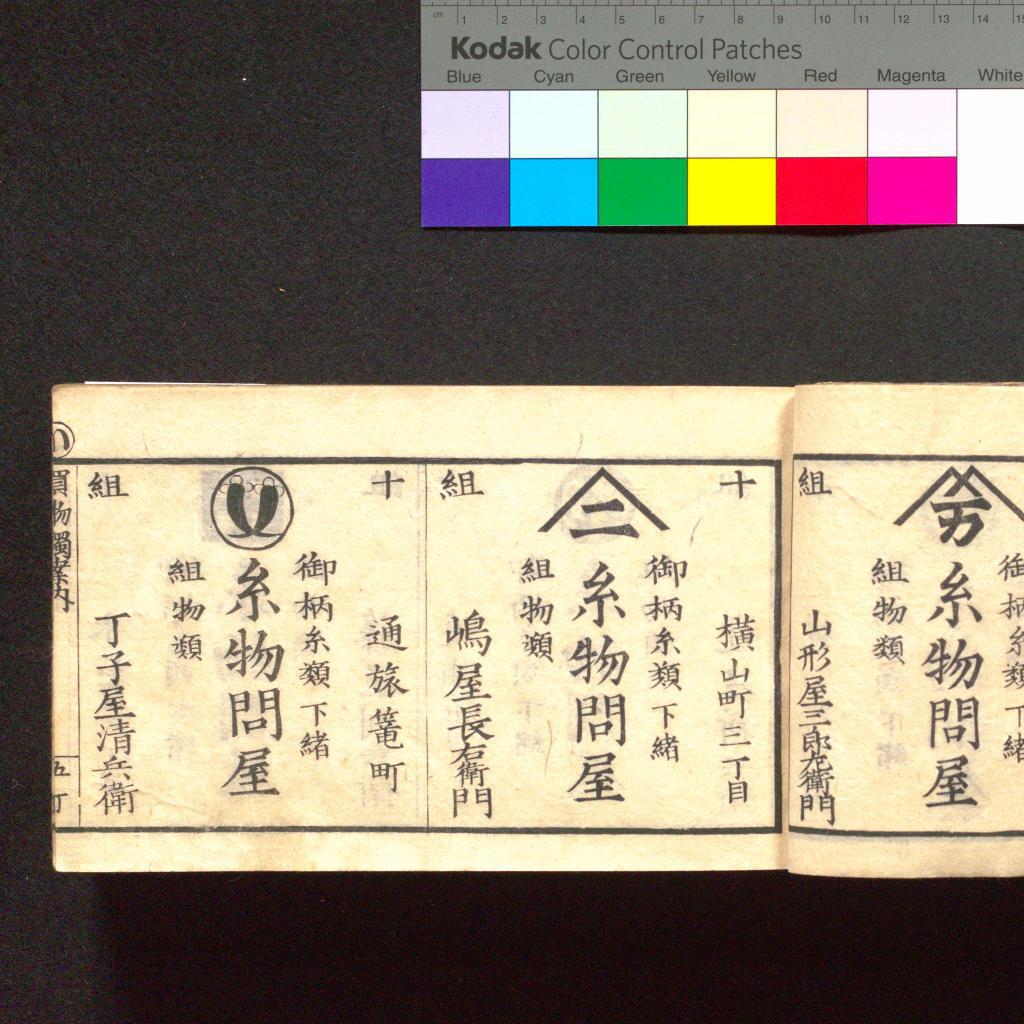 cm 1 2 3 4 5 6 7 8 9 10 11 12 13 14
Kodak Color Control Patches
Blue Cyan Green Yellow Red Magenta White
御柄糸類下緒
糸物問屋
組物類
組
山形屋三郎左衛門
十
横山町三丁目
二
御柄糸類下緒
糸物問屋
組物類
組
嶋屋長右衛門
十
通旅篭町
御柄糸類下緒
糸物問屋
組物類
組
丁子屋清兵衛
買物獨案内
五丁